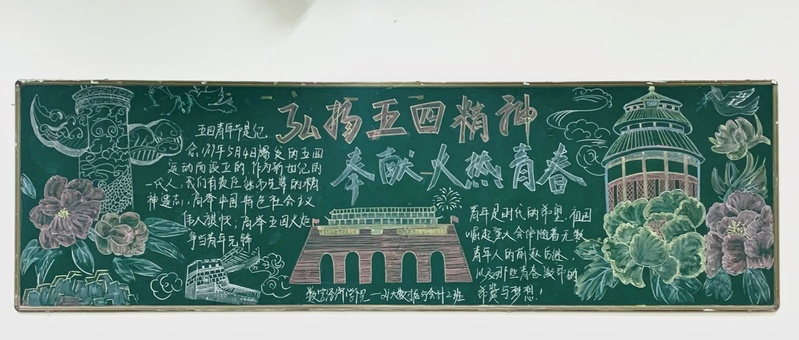 弘扬五四精神
奉献火热青春
五四青年节是纪
念1919年5月4日爆发的五四
运动而设立的,作为新世纪的
一代人,我们有责任继承先辈的精
神遗志,高举中国特色社会主义
伟大旗帜,高举五四火炬
争当青年先锋
青年是时代的希望,祖国
崛起强大会伴随着无数
青年人的
青春
希冀与梦想!
数字经济学院——21大数据与会计2班